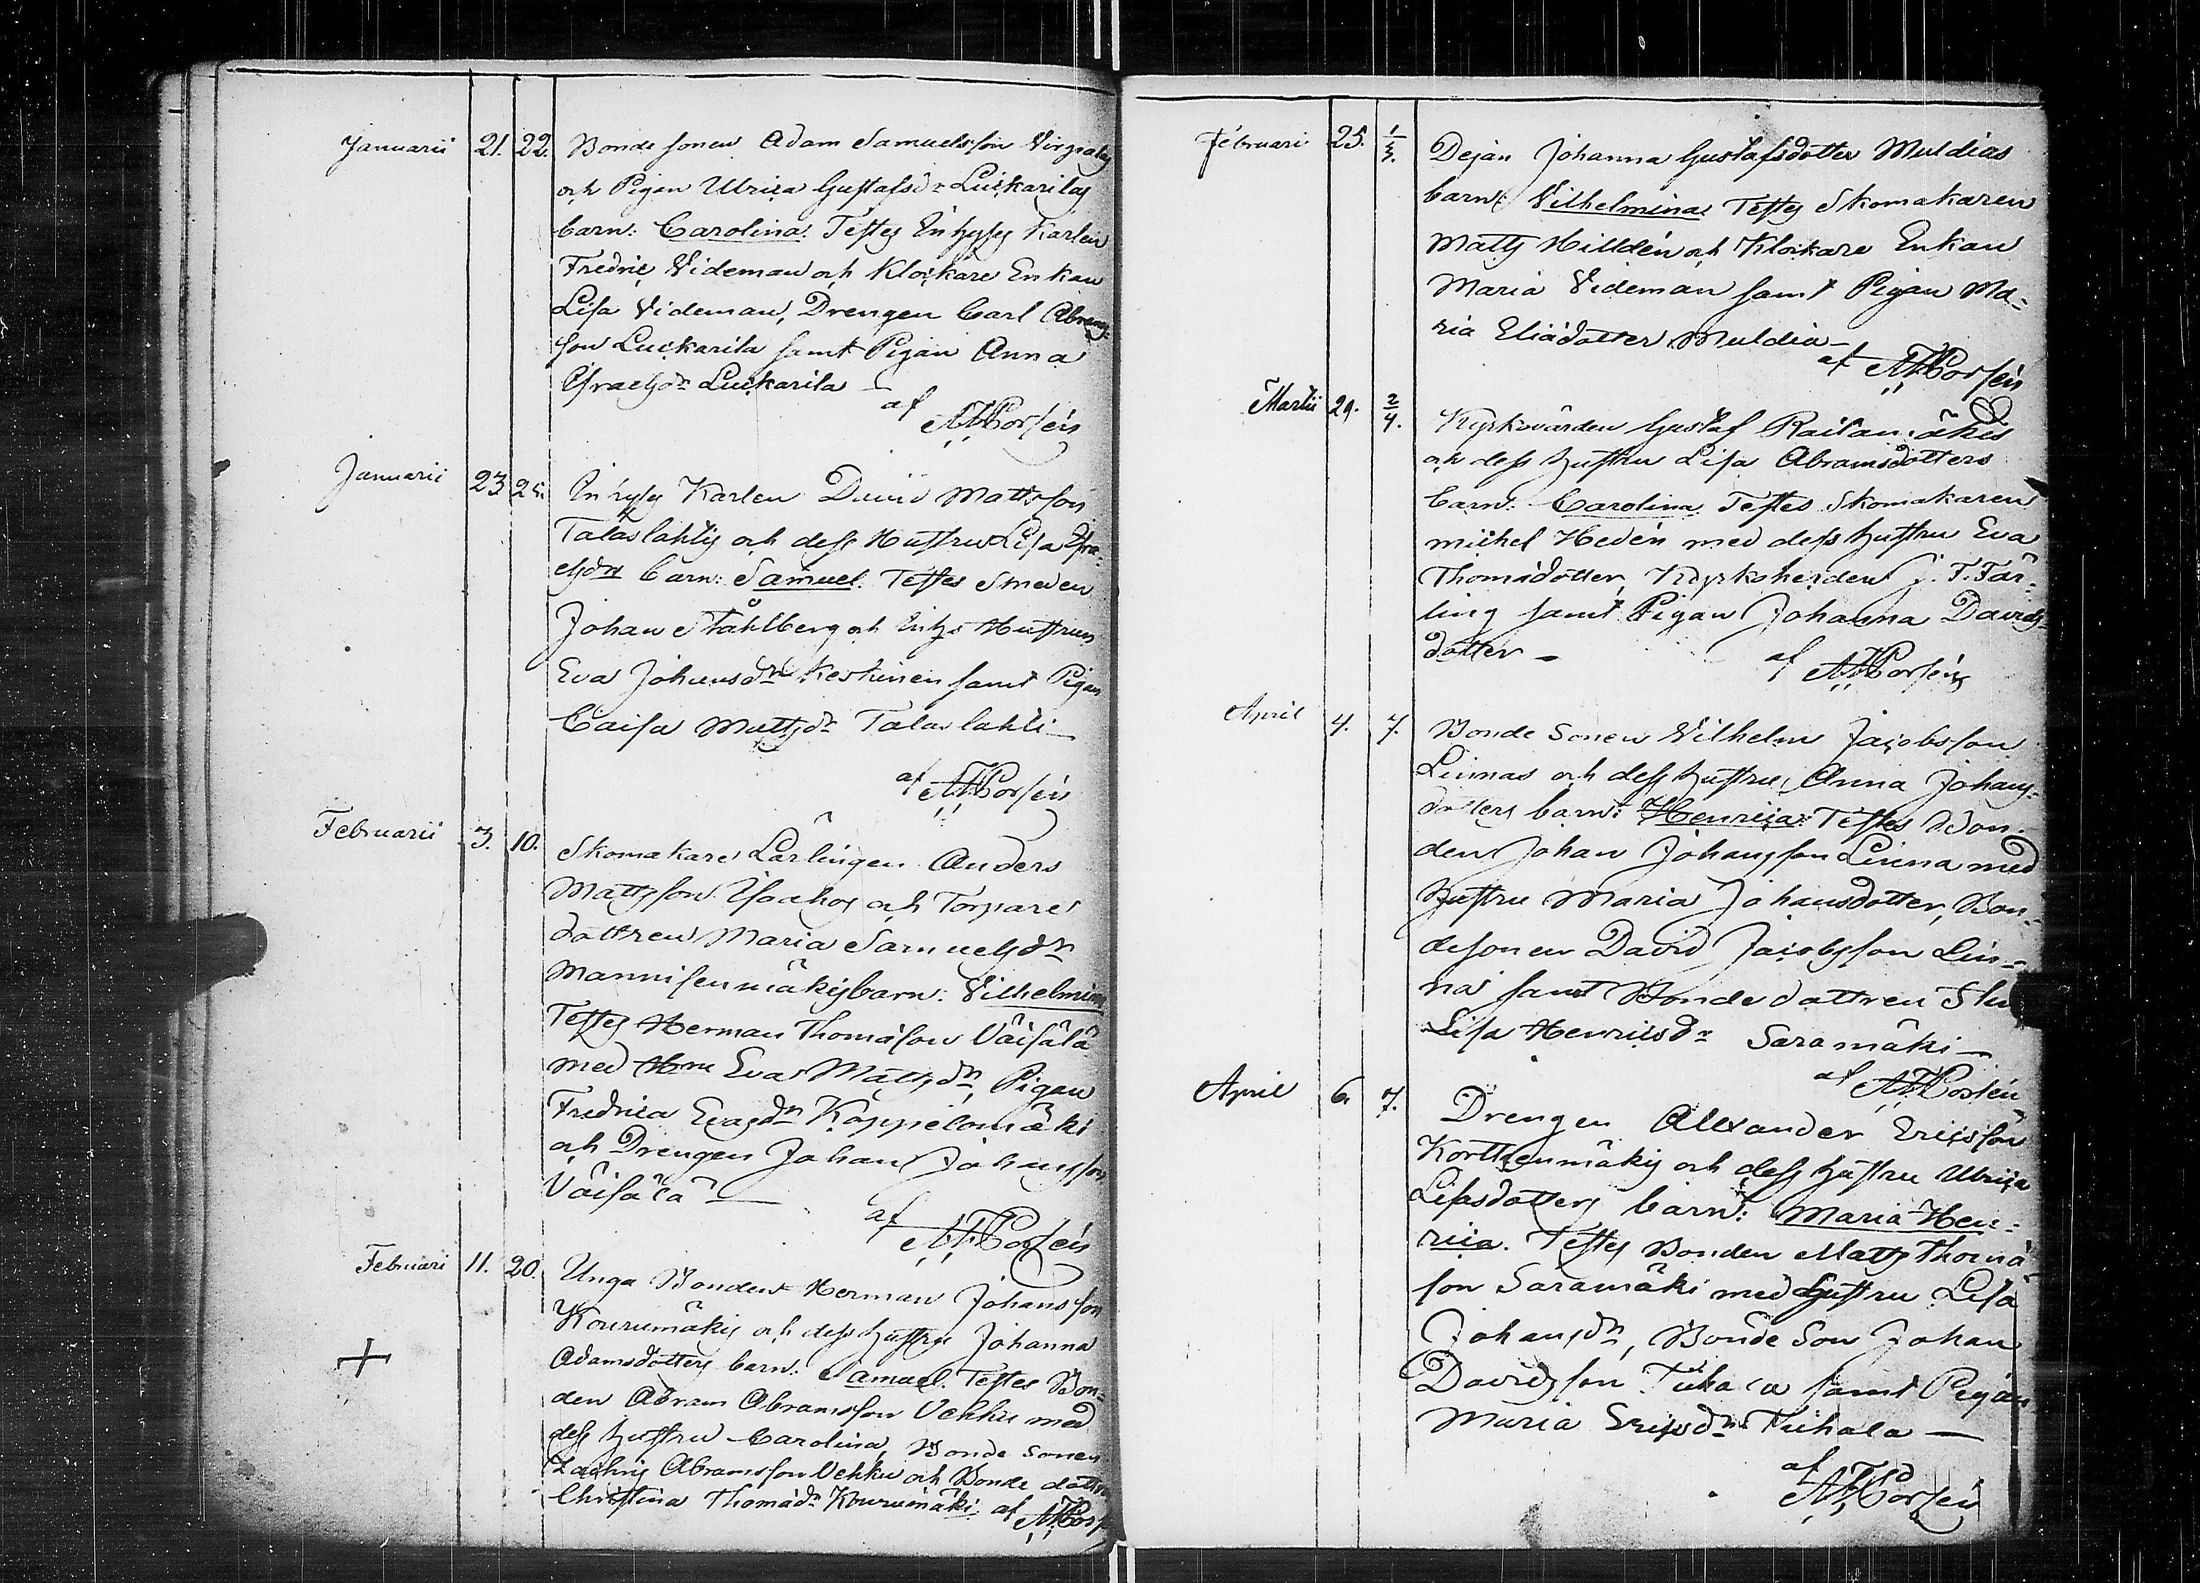 Januarii 21. 22. Bonde sonen Adam Samuelsson
och Pigan Ulrica Gustafsdr Luckarilas
barn: Carolina. Testes Inhyses Karlen
Fredric Videman och Klockare Enkan
Lisa Videman, Drengen Carl Abrams-
son Luckarila samt Pigan Anna
Israelsdr Luckarila —
af
Januarii 23 25. Inhyses Karlen David Mattsson
Talaslahtis och dess Hustru Lisa Isra-
elsdrs barn: Samuel. Testes Smeden
Johan Ståhlberg och Inhs Hustrun
Eva Johansdr Keskinen samt Pigan
Caisa Mattsdr Talaslahti —
af
Februarii 3. 10. Skomakare Lärlingen Anders
Mattsson och Torpare
dottren Maria Samuelsdr
Mannisenmäkis barn: Vilhelmina
Testes Herman Thomasson Väisälä
med Hru Eva Mattsdr, Pigan
Fredrica Kappelomäki
och Drengen Johan Johansson
Väisälä —
af
Februari 11. 20. Unga Bonden Herman Johansson
Kourumäkis och dess hustru Johanna
Adamsdotters barn: Samuel. Testes Bon-
den Abram Abramsson Vehku med
dess hustru Carolina, Bonde sonen
Zachris Abramsson Vehku och Bonde dottren
Christina Thomasdr Kourumäki. af
Februari 25. 1/3. Dejan Johanna Gustafsdotter Muldias
barn: Vilhelmina Testes Skomakaren
Matts Hilldén och Klockare Enkan
Maria Videman samt Pigan Ma-
ria Eliædotter Muldia —
af
Martii 29. 2/4. Kyrkovärden Gustaf Railamäkis
och dess hustru Lisa Abramsdotters
barn: Carolina. Testes Skomakaren
Michel Hedén med dess hustru Eva
Thomædotter, Kyrkoherden J. F. Fär-
ling samt Pigan Johanna Davids-
dotter —
af
April 4. 7. Bonde Sonen Vilhelm Jacobsson
Linnas och dess hustru Anna Johans-
dotters barn: Henrica: Testes Bon-
den Johan Johansson Linna med
hustru Maria Johansdotter, Bon-
desonen David Jacobsson Lin-
na samt Bonde dottren
Lisa Henricsdr Saramäki —
af
April 6. 7. Drengen Alexander Ericsson
Korttenmäkis och dess hustru Ulrica
Lisasdotters barn: Maria Hen-
rica. Testes Bonden Matts Thomæ-
son Saramäki med hustru Lisa
Johansdr, Bonde Son Johan
Davidsson samt Pigan
Maria Ericsdr Tuhala —
af